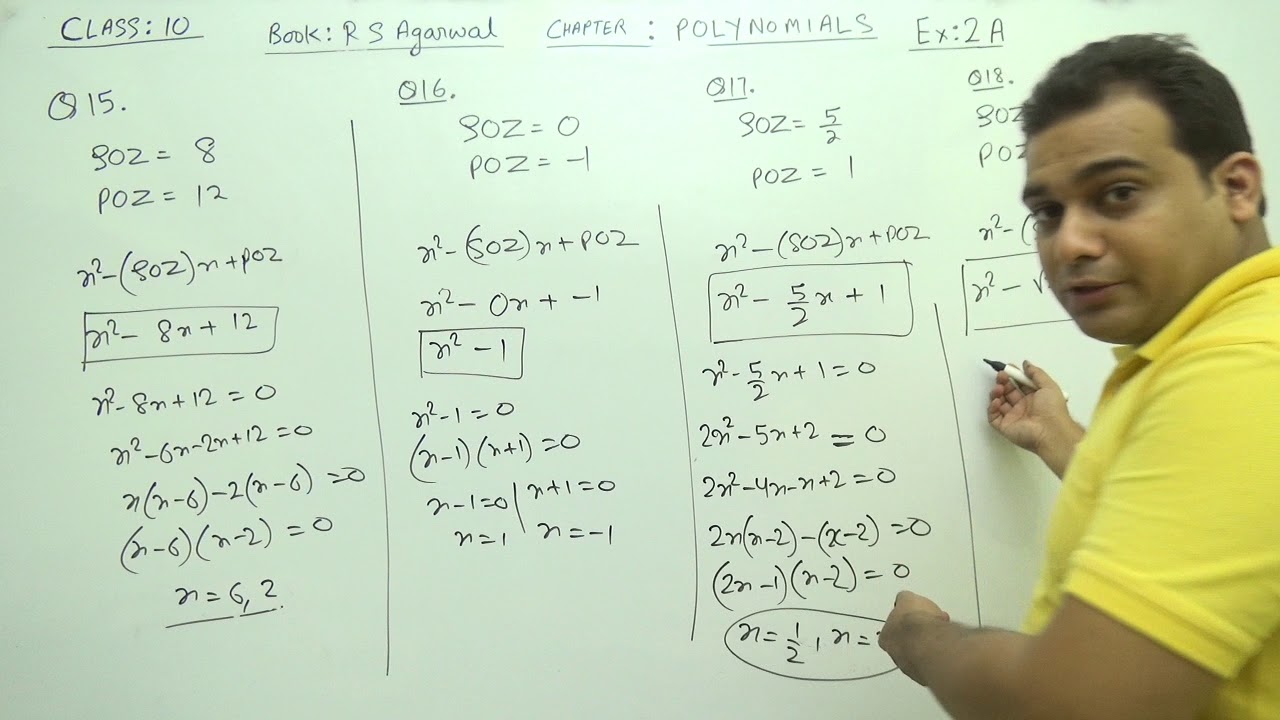 CLASS: 10 Book: R S Agarwal CHAPTER : POLYNOMIALS Ex: 2 A
Q 15.
SOZ = 8
POZ = 12
x²-(SOZ)x+POZ
x²- 8x+ 12
x²-8x+12 = 0
x²-6x-2x+12 = 0
x(x-6)-2(x-6) = 0
(x-6)(x-2) = 0
x = 6, 2.
Q16.
SOZ = 0
POZ = -1
x²-(SOZ)x+POZ
x²- 0x + -1
x² - 1
x²-1 = 0
(x-1)(x+1) = 0
x-1=0 | x+1=0
x=1 | x=-1
Q17.
SOZ = 5/2
POZ = 1
x² -(SOZ)x+POZ
x² - 5/2 x + 1
x²- 5/2 x + 1 = 0
2x²-5x+2 = 0
2x²-4x-x+2 = 0
2x(x-2)-(x-2) = 0
(2x-1)(x-2) = 0
x = 1/2 , x =
Q18.
SOZ
POZ
x²-(
x² - √